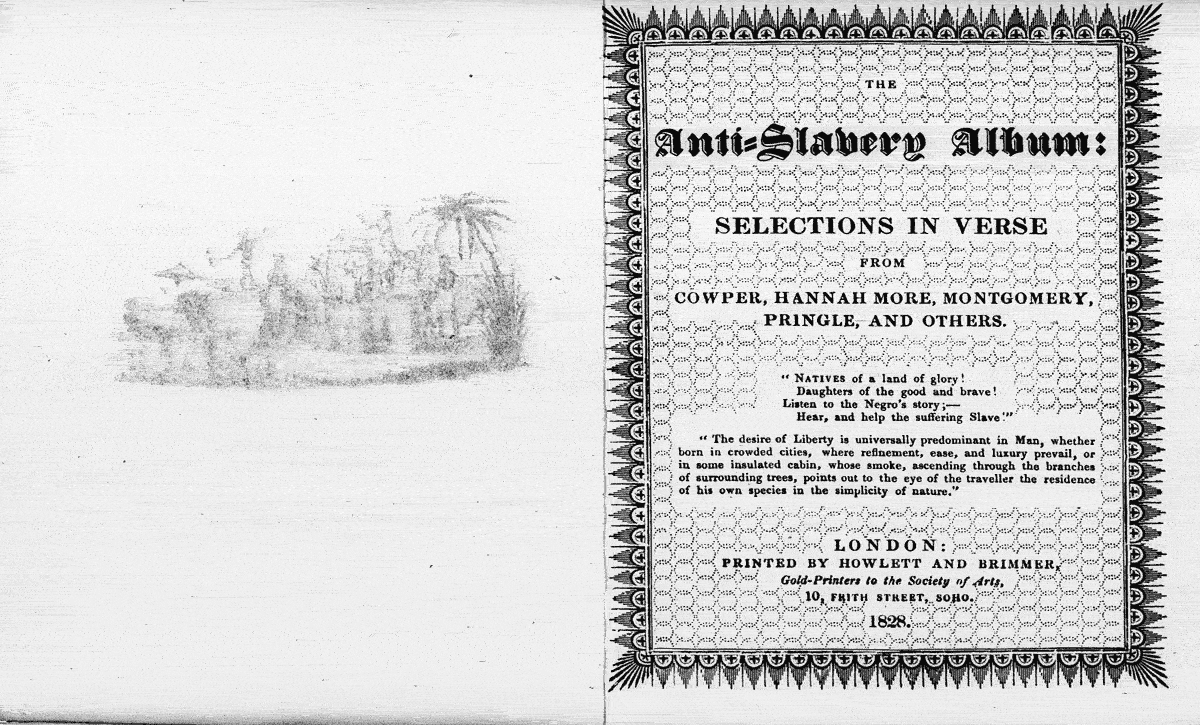 THE
Anti-Slavery Album:
SELECTIONS IN VERSE
FROM
COWPER, HANNAH MORE, MONTGOMERY,
PRINGLE, AND OTHERS.
“ NATIVES of a land of glory!
Daughters of the good and brave!
Listen to the Negro's story;—
Hear, and help the suffering Slave!”
“ The desire of Liberty is universally predominant in Man, whether
born in crowded cities, where refinement, ease, and luxury prevail, or
in some insulated cabin, whose smoke, ascending through the branches
of surrounding trees, points out to the eye of the traveller the residence
of his own species in the simplicity of nature.”
LONDON:
PRINTED BY HOWLETT AND BRIMMER,
Gold-Printers to the Society of Arts,
10, FRITH STREET, SOHO.
1828.